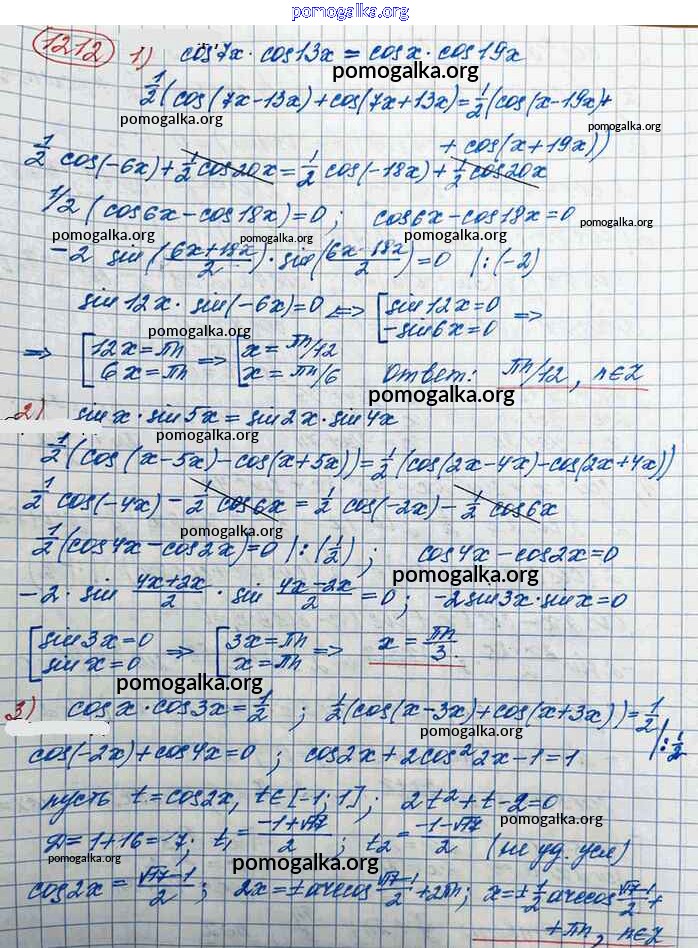 pomogalka.org
1212 1) cos7x · cos13x = cosx · cos19x
pomogalka.org
1/2(cos(7x-13x)+cos(7x+13x)=1/2(cos(x-19x)+
pomogalka.org
pomogalka.org
+ cos(x+19x))
1/2 cos(-6x)+1/2 cos20x = 1/2 cos(-18x)+1/2 cos20x
1/2 (cos6x-cos18x)=0; cos6x-cos18x=0
pomogalka.org
pomogalka.org
pomogalka.org
-2 sin(6x+18x/2)·sin(6x-18x/2)=0 |:(-2)
sin12x·sin(-6x)=0 <=> [sin12x=0 =>
-sin6x=0
pomogalka.org
=> [12x=πn => [x=πn/12
6x=πn x=πn/6 Ответ: πn/12, n∈Z
pomogalka.org
2) sinx·sin5x=sin2x·sin4x
pomogalka.org
1/2(cos(x-5x)-cos(x+5x))=1/2(cos(2x-4x)-cos(2x+4x))
1/2 cos(-4x)-1/2 cos6x=1/2 cos(-2x)-1/2 cos6x
pomogalka.org
1/2(cos4x-cos2x)=0 |:(1/2); cos4x-cos2x=0
pomogalka.org
-2·sin 4x+2x/2 · sin 4x-2x/2 = 0; -2sin3x·sinx=0
[sin3x=0 => [3x=πn => x=πn/3.
sinx=0 x=πn
pomogalka.org
3) cosx·cos3x=1/2; 1/2(cos(x-3x)+cos(x+3x))=1/2 |:1/2
cos(-2x)+cos4x=0; cos2x+2cos²2x-1=1
пусть t=cos2x, t∈[-1;1]; 2t²+t-2=0
pomogalka.org
Д=1+16=17; t₁=-1+√17/2; t₂=-1-√17/2 (не уд. усл)
pomogalka.org
pomogalka.org
cos2x=√17-1/2; 2x=±arccos √17-1/2 +2πn; x=±1/2 arccos √17-1/2 +
+πn, n∈Z
pomogalka.org